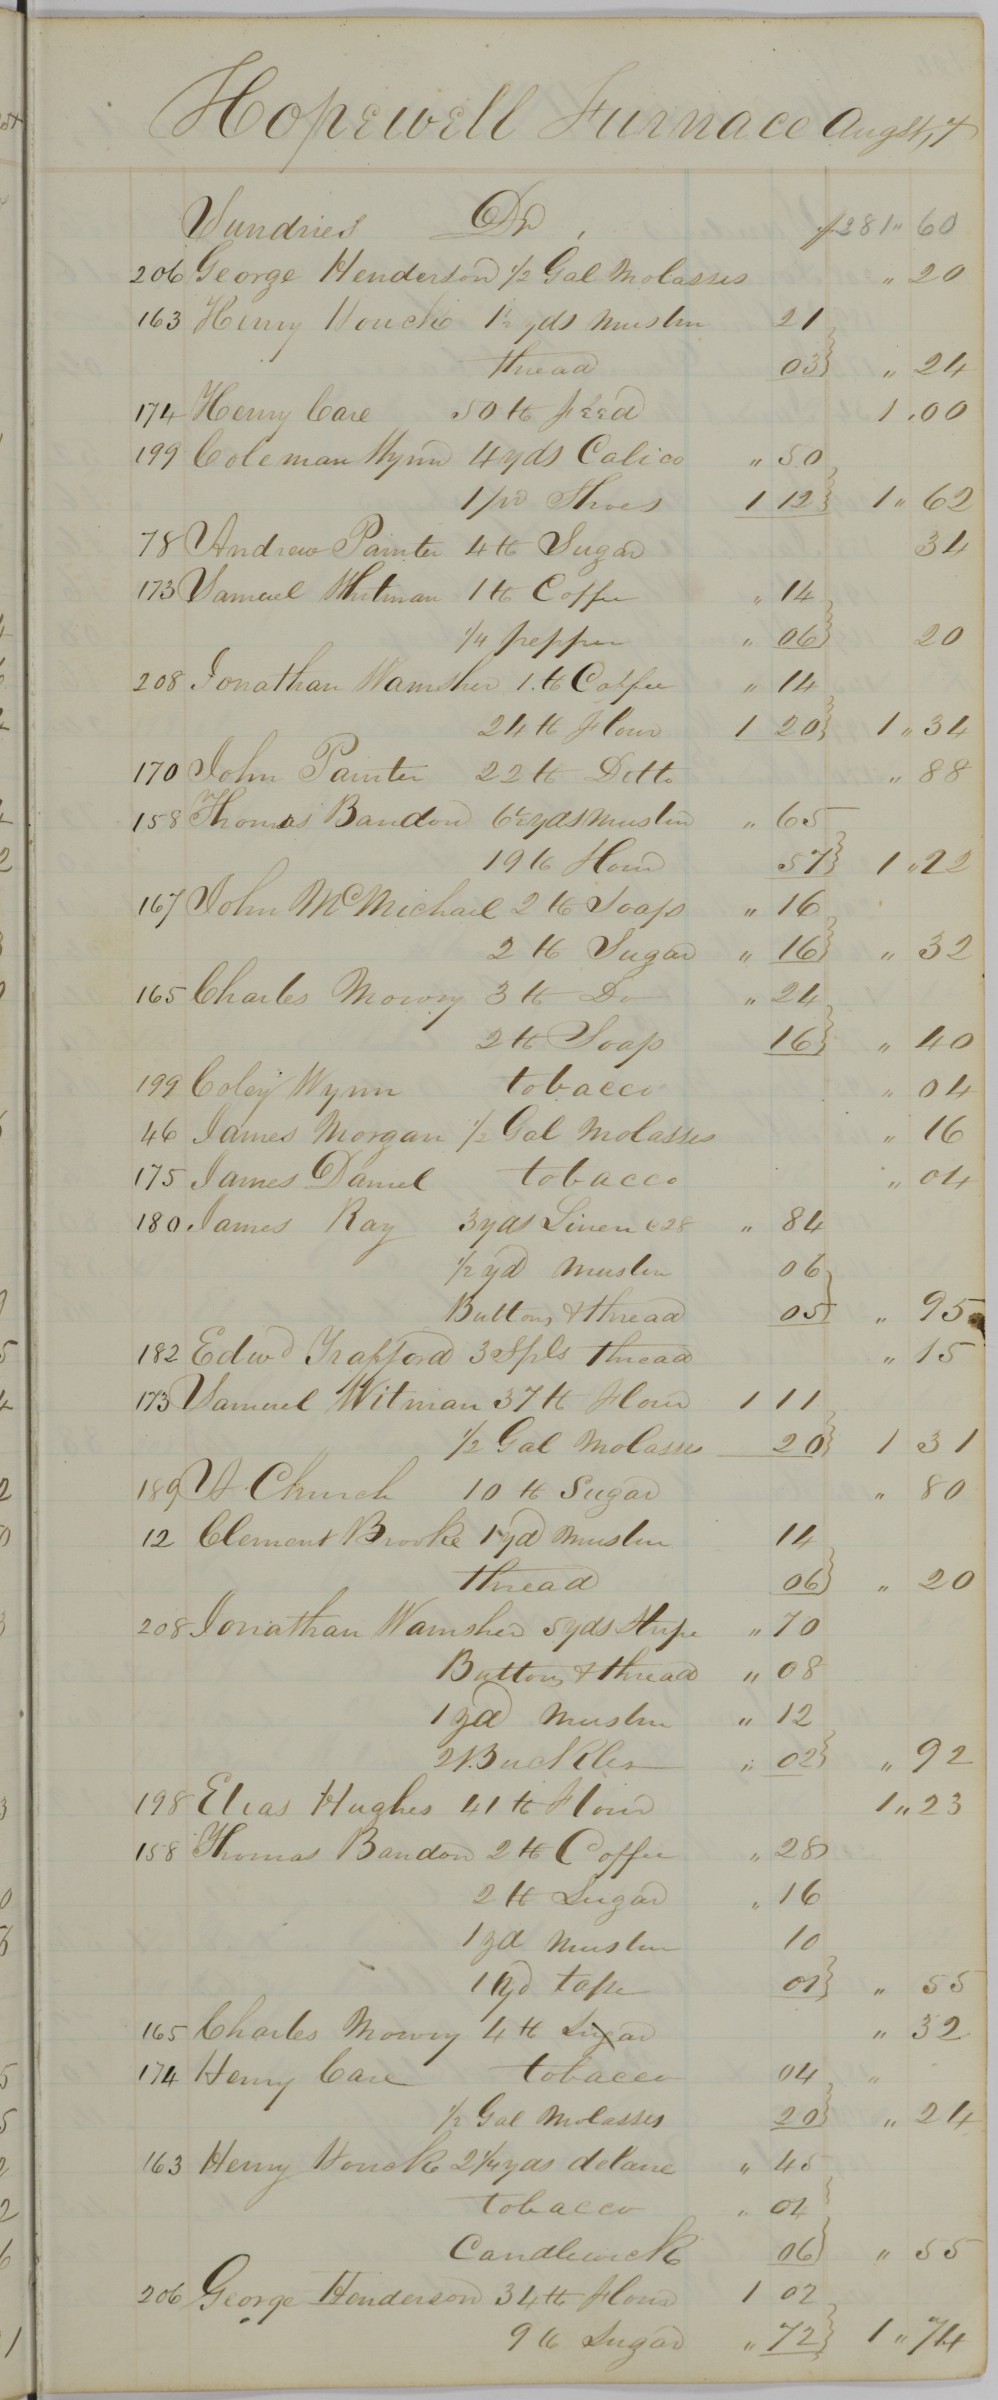 Hopewell Furnace Augst, 7
Sundries Dr , 281" 60
206 George Henderson 1/2 Gal Molasses " 20
163 Henry Houck 1½ yds Muslin 21
thread 03} " 24
174 Henry Care 50 lb feed 1.00
199 Coleman Wynn 4 yds Calico " 50
1 pr Shoes 1 12} 1" 62
78 Andrew Painter 4 lb Sugar 34
173 Samuel Whitman 1 lb Coffee " 14
1/4 pepper " 06} 20
208 Jonathan Wamsher 1. lb Coffee " 14
24 lb flour 1 20} 1" 34
170 John Painter 22 lb Ditto " 88
158 Thomas Bandon 6½ yds Muslin " 65
19 lb Flour 57} 1"22
167 John McMichael 2 lb Soap " 16
2 lb Sugar " 16} " 32
165 Charles Mowry 3 lb Do " 24
2 lb Soap 16} " 40
199 Coley Wynn tobacco " 04
46 James Morgan 1/2 Gal Molasses " 16
175 James Daniel tobacco " 04
180 James Ray 3 yds Linen c28 " 84
1/2 yd Muslin 06
Buttons & thread 05} " 95
182 Edwd Trafford 3 Spls thread " 15
173 Samuel Witman 37 lb Flour 1 11
1/2 Gal Molasses 20} 1 31
189 A Church 10 lb Sugar " 80
12 Clement Brooke 1 yd Muslin 14
thread 06} " 20
208 Jonathan Wamsher 5 yds Stripe " 70
Buttons & thread " 08
1 yd Muslin " 12
2 Buckles " 02} " 92
198 Elias Hughes 41 lb Flour 1"23
158 Thomas Bandon 2 lb Coffee " 28
2 lb Sugar " 16
1 yd Muslin 10
1 yd tape 01} " 55
165 Charles Mowry 4 lb Sugar " 32
174 Henry Care tobacco 04 "
1/2 Gal Molasses 20} " 24
163 Henry Houck 2 1/4 yds delane " 45
tobacco " 04
Candlewick 06} " 55
206 George Henderson 34 lb Flour 1 02
9 lb Sugar " 72} 1" 74